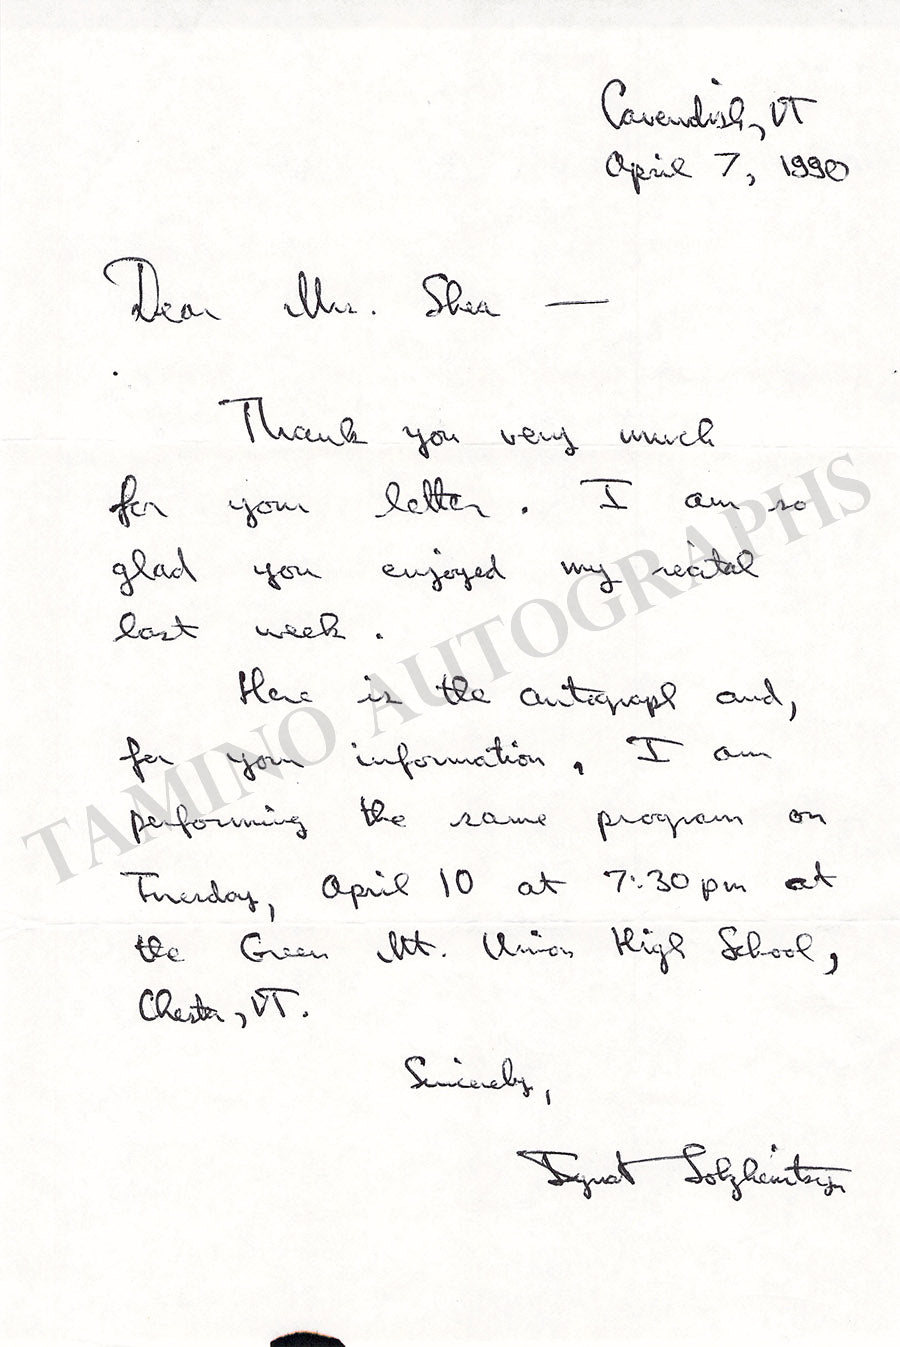 Cavendish, VT
April 7, 1990
Dear Mrs. Shea —
Thank you very much
for your letter. I am so
glad you enjoyed my recital
last week.
Here is the autograph and,
for your information, I am
performing the same program on
Tuesday, April 10 at 7:30 pm at
the Green Mt. Union High School,
Chester, VT.
Sincerely,
Ignat Solzhenitsyn
TAMINO AUTOGRAPHS